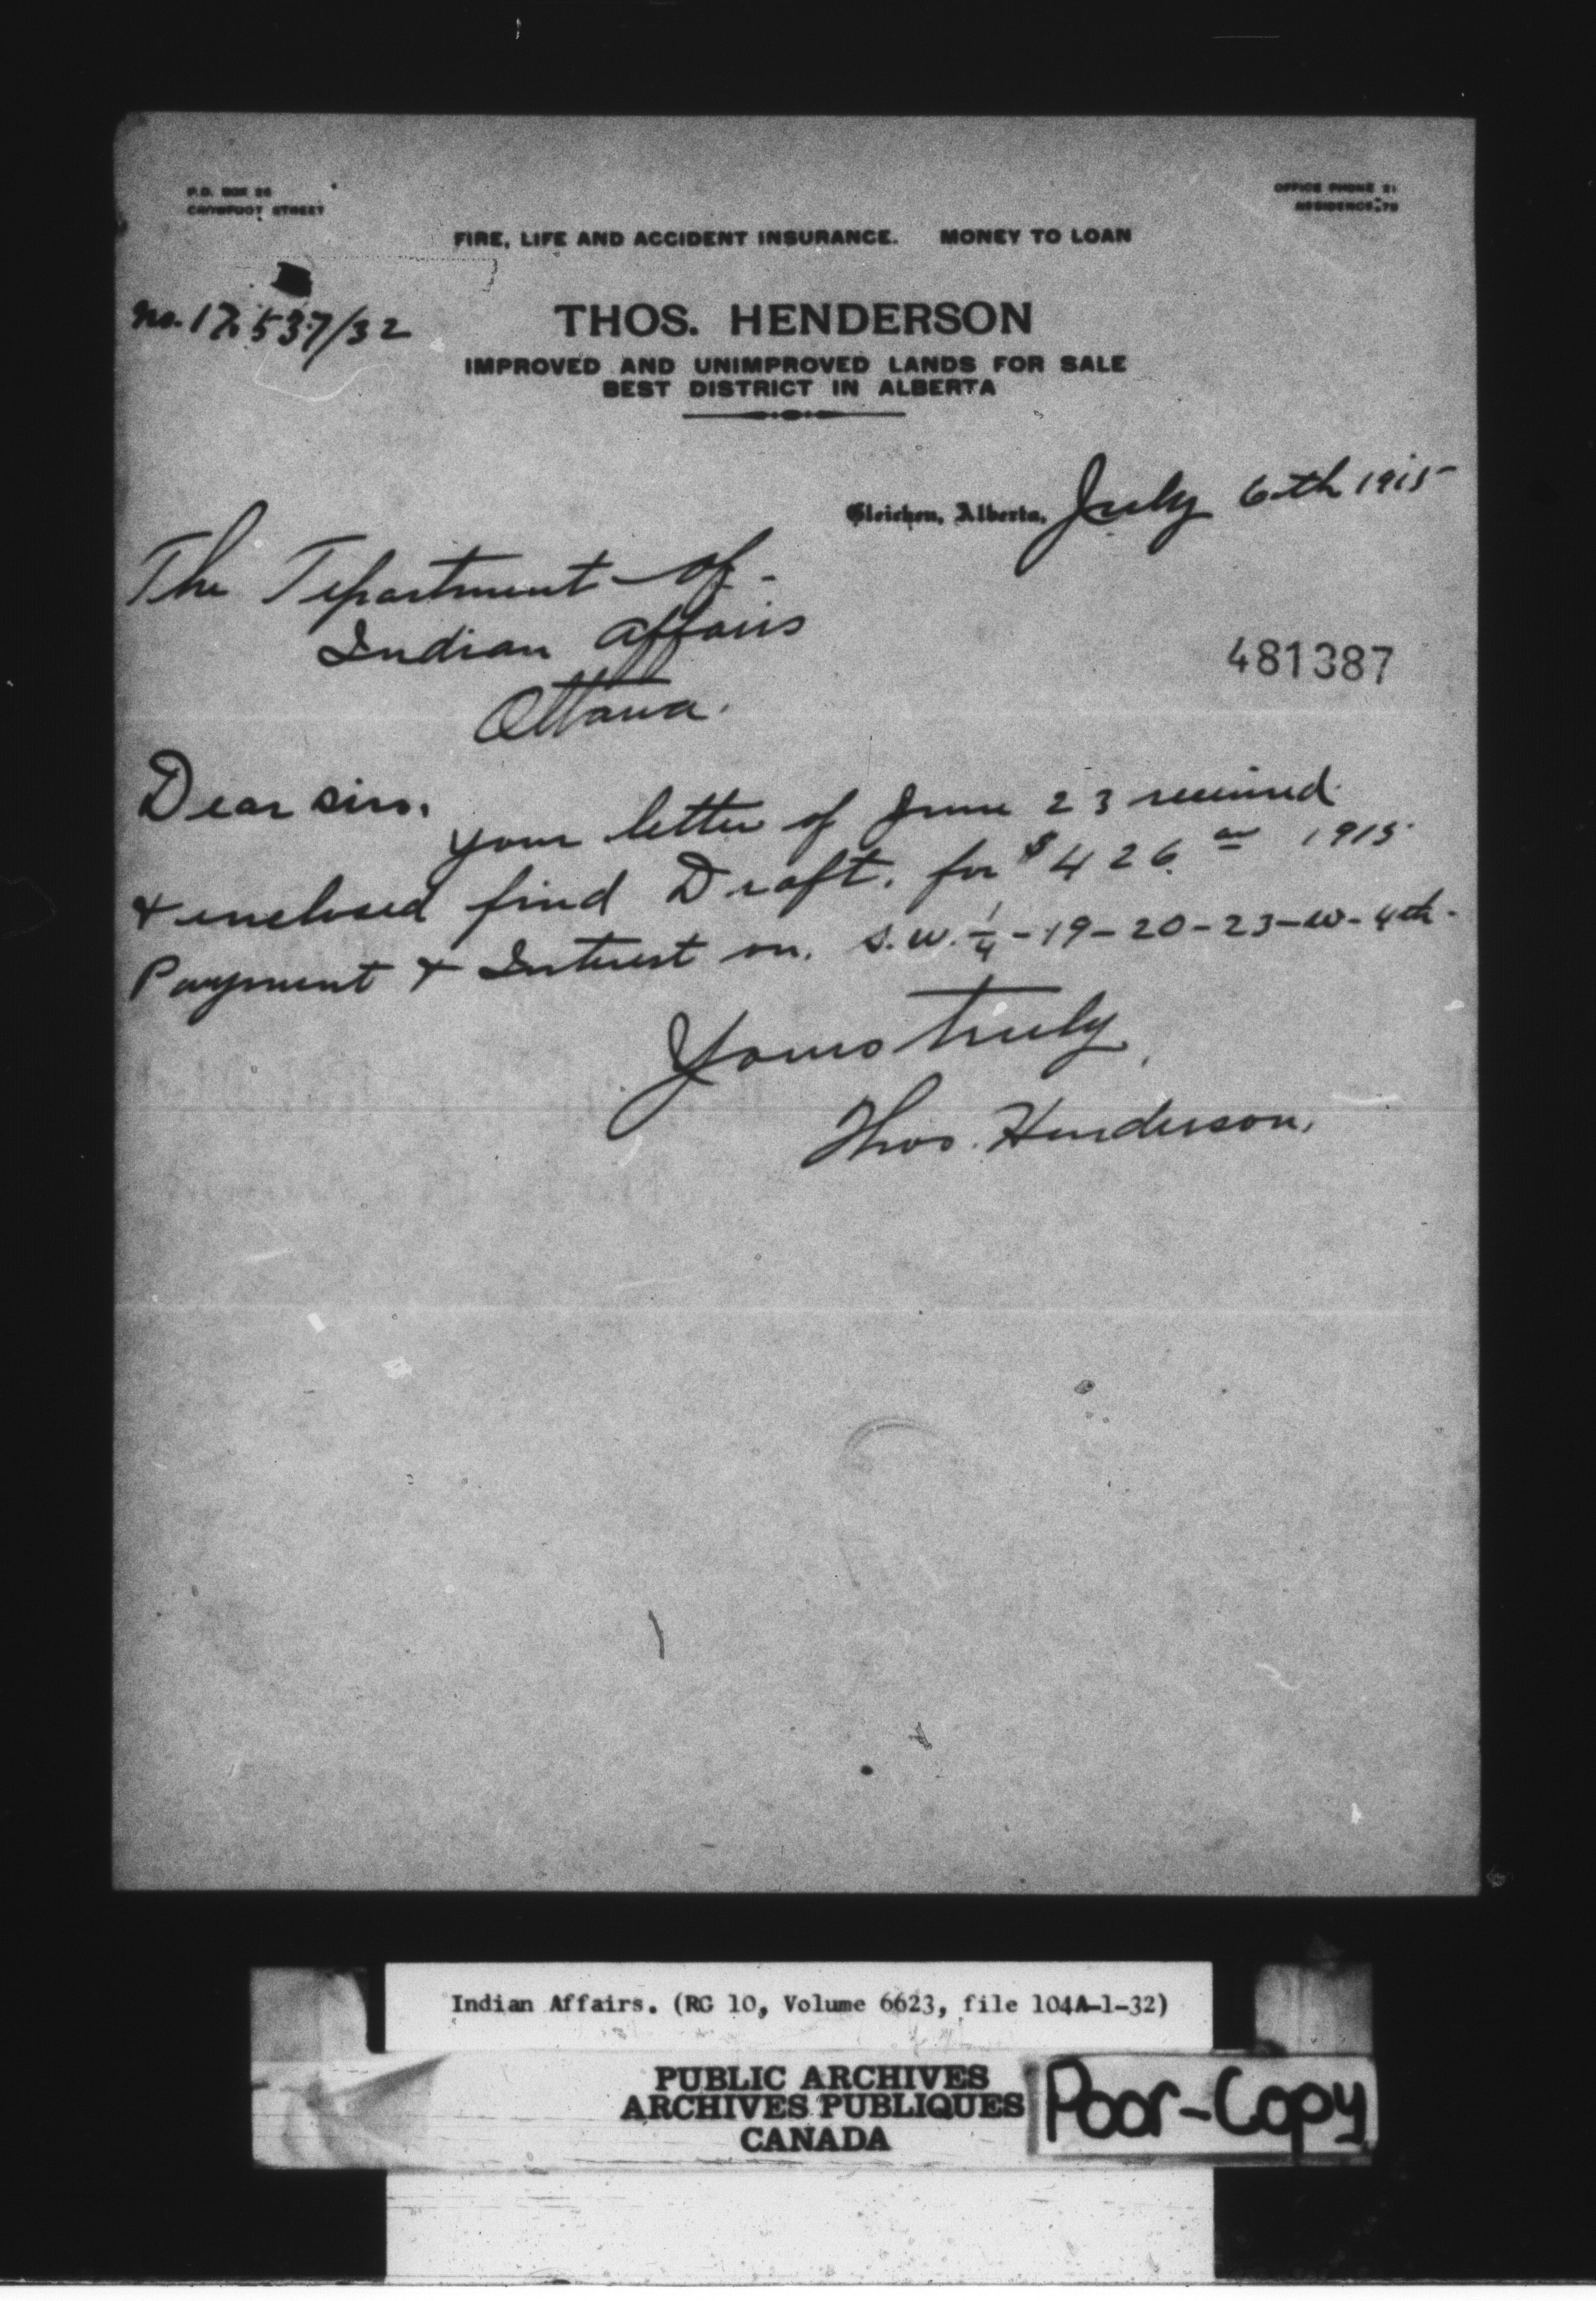 P.O. BOX 26
CROWFOOT STREET
OFFICE PHONE 21
RESIDENCE 79
FIRE, LIFE AND ACCIDENT INSURANCE. MONEY TO LOAN
No. 17,537/32
THOS. HENDERSON
IMPROVED AND UNIMPROVED LANDS FOR SALE
BEST DISTRICT IN ALBERTA
Gleichen, Alberta, July 6th 1915
The Department of
Indian Affairs
Ottawa.
481387
Dear Sirs.
your letter of June 23 received
& enclosed find Draft. for $426. 1915
Payment & Interest on. S.W. 1/4-19-20-23-W-4th.
Yours truly
Thos. Henderson.
Indian Affairs. (RG 10, Volume 6623, file 104A-1-32)
PUBLIC ARCHIVES
ARCHIVES PUBLIQUES
CANADA
Poor-Copy